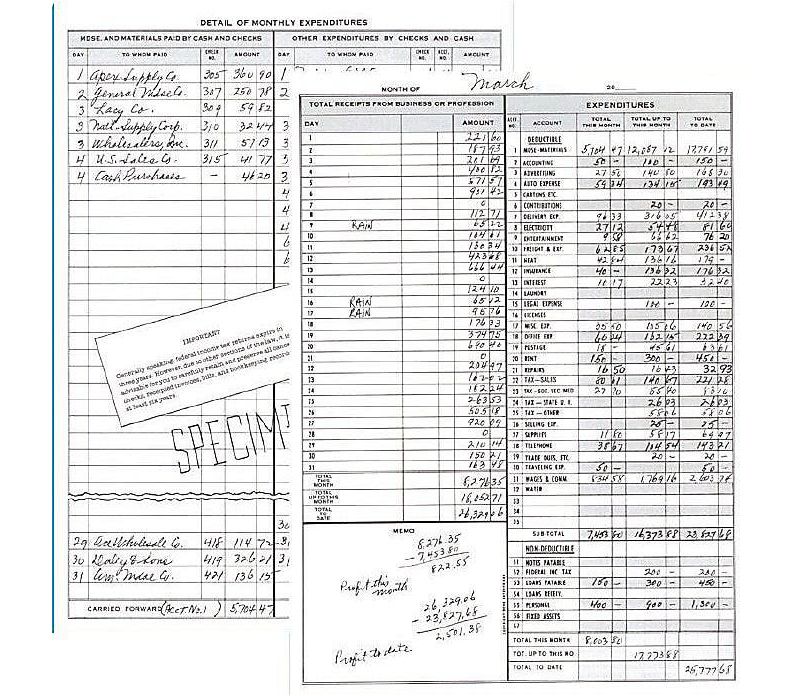 DETAIL OF MONTHLY EXPENDITURES
MDSE. AND MATERIALS PAID BY CASH AND CHECKS
OTHER EXPENDITURES BY CHECKS AND CASH
DAY TO WHOM PAID CHECK NO. AMOUNT DAY TO WHOM PAID CHECK NO. ACCT. NO. AMOUNT
1 Apex Supply Co. 305 360 90 1
2 General Mdse Co. 307 250 78 2
3 Lacy Co. 309 59 82
3 Nat'l. Supply Corp. 310 32 44 3
3 Wholesalers, Inc. 311 57 13 3
4 U.S. Sales Co. 315 41 77 3
4 Cash Purchases — 46 20 3
IMPORTANT
Generally speaking federal income tax returns expire in
three years. However, due to other sections of the law, it is
advisable for you to carefully retain and preserve all cancelled
checks, receipted invoices, bills, and bookkeeping records
at least six years.
SPECIM
29 Ace Wholesale Co. 418 114 72
30 Daley & Sons 419 326 21
31 Wm. Mdse Co. 421 136 15
CARRIED FORWARD (Acct No. 1) 5,704 47
MONTH OF March 20
TOTAL RECEIPTS FROM BUSINESS OR PROFESSION
DAY AMOUNT
1 221 60
2 187 93
3 201 69
4 400 82
5 571 57
6 901 42
7 0
8 112 71
9 RAIN 65 22
10 104 61
11 130 34
12 423 68
13 666 44
14 0
15 124 10
16 RAIN 65 12
17 RAIN 95 76
18 176 33
19 374 75
20 690 40
21 0
22 204 97
23
24 182 24
25 263 53
26 505 18
27 920 09
28 0
29 210 14
30 150 21
31 163 48
TOTAL THIS MONTH 8,276 35
TOTAL UP TO THIS MONTH 18,052 71
TOTAL TO DATE 26,329 06
MEMO
8,276.35
- 7,453 80
822.55
Profit this month
26,329.06
- 23,827.68
2,501.38
Profit to date
EXPENDITURES
ACCT. NO. ACCOUNT TOTAL THIS MONTH TOTAL UP TO THIS MONTH TOTAL TO DATE
DEDUCTIBLE
1 MDSE-MATERIALS 5,704 47 12,087 12 17,791 59
2 ACCOUNTING 50 — 100 — 150 —
3 ADVERTISING 27 50 140 80 168 30
4 AUTO EXPENSE 59 34 134 15 193 49
5 CARTONS ETC.
6 CONTRIBUTIONS 20 — 20 —
7 DELIVERY EXP. 96 33 316 05 412 38
8 ELECTRICITY 27 12 54 48 81 60
9 ENTERTAINMENT 9 58 66 62 76 20
10 FREIGHT & EXP. 62 85 173 67 236 52
11 HEAT 42 84 136 16 179 —
12 INSURANCE 40 — 136 32 176 32
13 INTEREST 10 17 22 23 32 40
14 LAUNDRY
15 LEGAL EXPENSE 100 — 100 —
16 LICENSES
17 MISC. EXP. 35 50 105 06 140 56
18 OFFICE EXP. 60 24 162 15 222 39
19 POSTAGE 18 — 45 61 63 61
20 RENT 150 — 300 — 450 —
21 REPAIRS 16 50 16 43 32 93
22 TAX—SALES 80 61 140 67 221 28
23 TAX - SOC. SEC. MED 27 70 55 40 83 10
24 TAX — STATE U. I. 26 03 26 03
25 TAX — OTHER 58 06 58 06
26 SELLING EXP. 25 — 25 —
27 SUPPLIES 11 80 58 17 69 97
28 TELEPHONE 38 67 104 54 143 21
29 TRADE DUES, ETC. 20 — 20 —
30 TRAVELING EXP. 50 — 50 —
31 WAGES & COMM. 834 58 1,769 16 2,603 74
32 WATER
33
34
35
SUB TOTAL 7,453 80 16,373 88 23,827 68
NON-DEDUCTIBLE
51 NOTES PAYABLE
52 FEDERAL INC. TAX 200 — 200 —
53 LOANS PAYABLE 150 — 300 — 450 —
54 LOANS RECEIV.
55 PERSONAL 400 — 900 — 1,300 —
56 FIXED ASSETS
57
TOTAL THIS MONTH 8,003 80
TOT. UP TO THIS MO. 17,773 88
TOTAL TO DATE 25,777 68